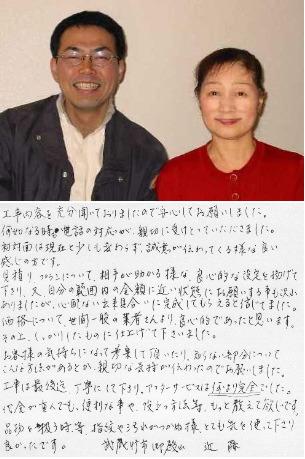 工事内容を充分聞いておりましたので安心してお願いしました。
何切なる時も電話の対応が、親切に受けていただきました。
初対面は現在と少しも変わらず、誠意が伝わってくる様な良い
感じの方です。
見積りについて、相手が助かる様な、良心的な設定を掲げて
下さり、又、自分の範囲内の金額に近い状態にお願いする事も
ありましたが、心配ない出来具合いに完成してもらえると信じてました。
価格について、世間一般の業者さんより、良心的であったと思います。
その上、しっかりしたものに仕上げて下さいました。
お客様の気持ちになって考案して頂いたり、知らない部分について
こんな方法があるとか、親切な気持が伝わったのでお願いしました。
工事は最後迄、丁寧にして下さり、アフターサービスは何より完全でした。
代金が含んでも、便利な事や、役立つ方法等、もっと教えて欲しいです。
品物を扱う時等、指紋やよごれがつかぬ様、とても気を使って下さり
良かったです。 武蔵野市御殿山 近藤